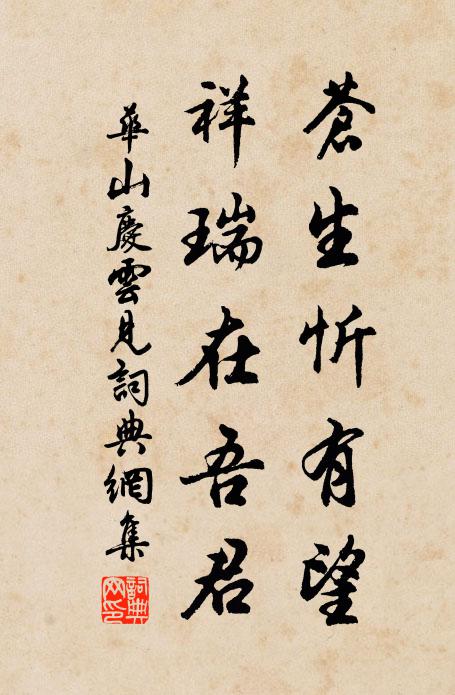 蒼生忻有望
祥瑞在吾君
華山慶雲見詞典網集
詞典網印